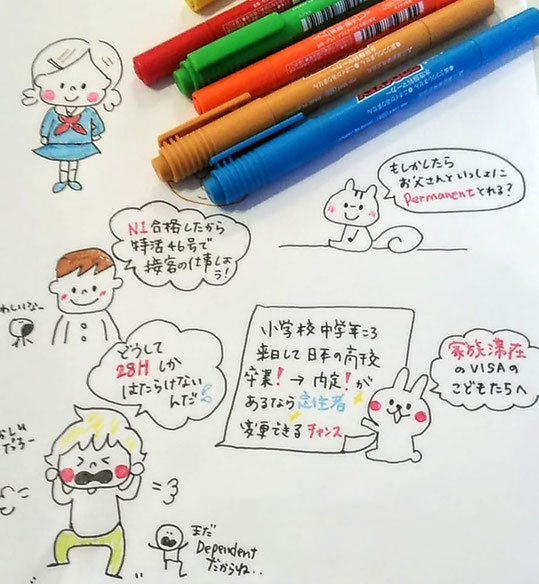 もしかしたら
お父さんといっしょに
Permanentとれる?
N1合格したから
特活46号で
接客の仕事しよ
う!
わしいなー
どうして
28Hしか
はたらけない
んだ
小学校中学年ころ
来日して日本の高校
卒業!→内定!が
あるなら定住者
変更できるチャンス
家族滞在
のVISAの
こどもたちへ
まだ
Dependent
だからね..